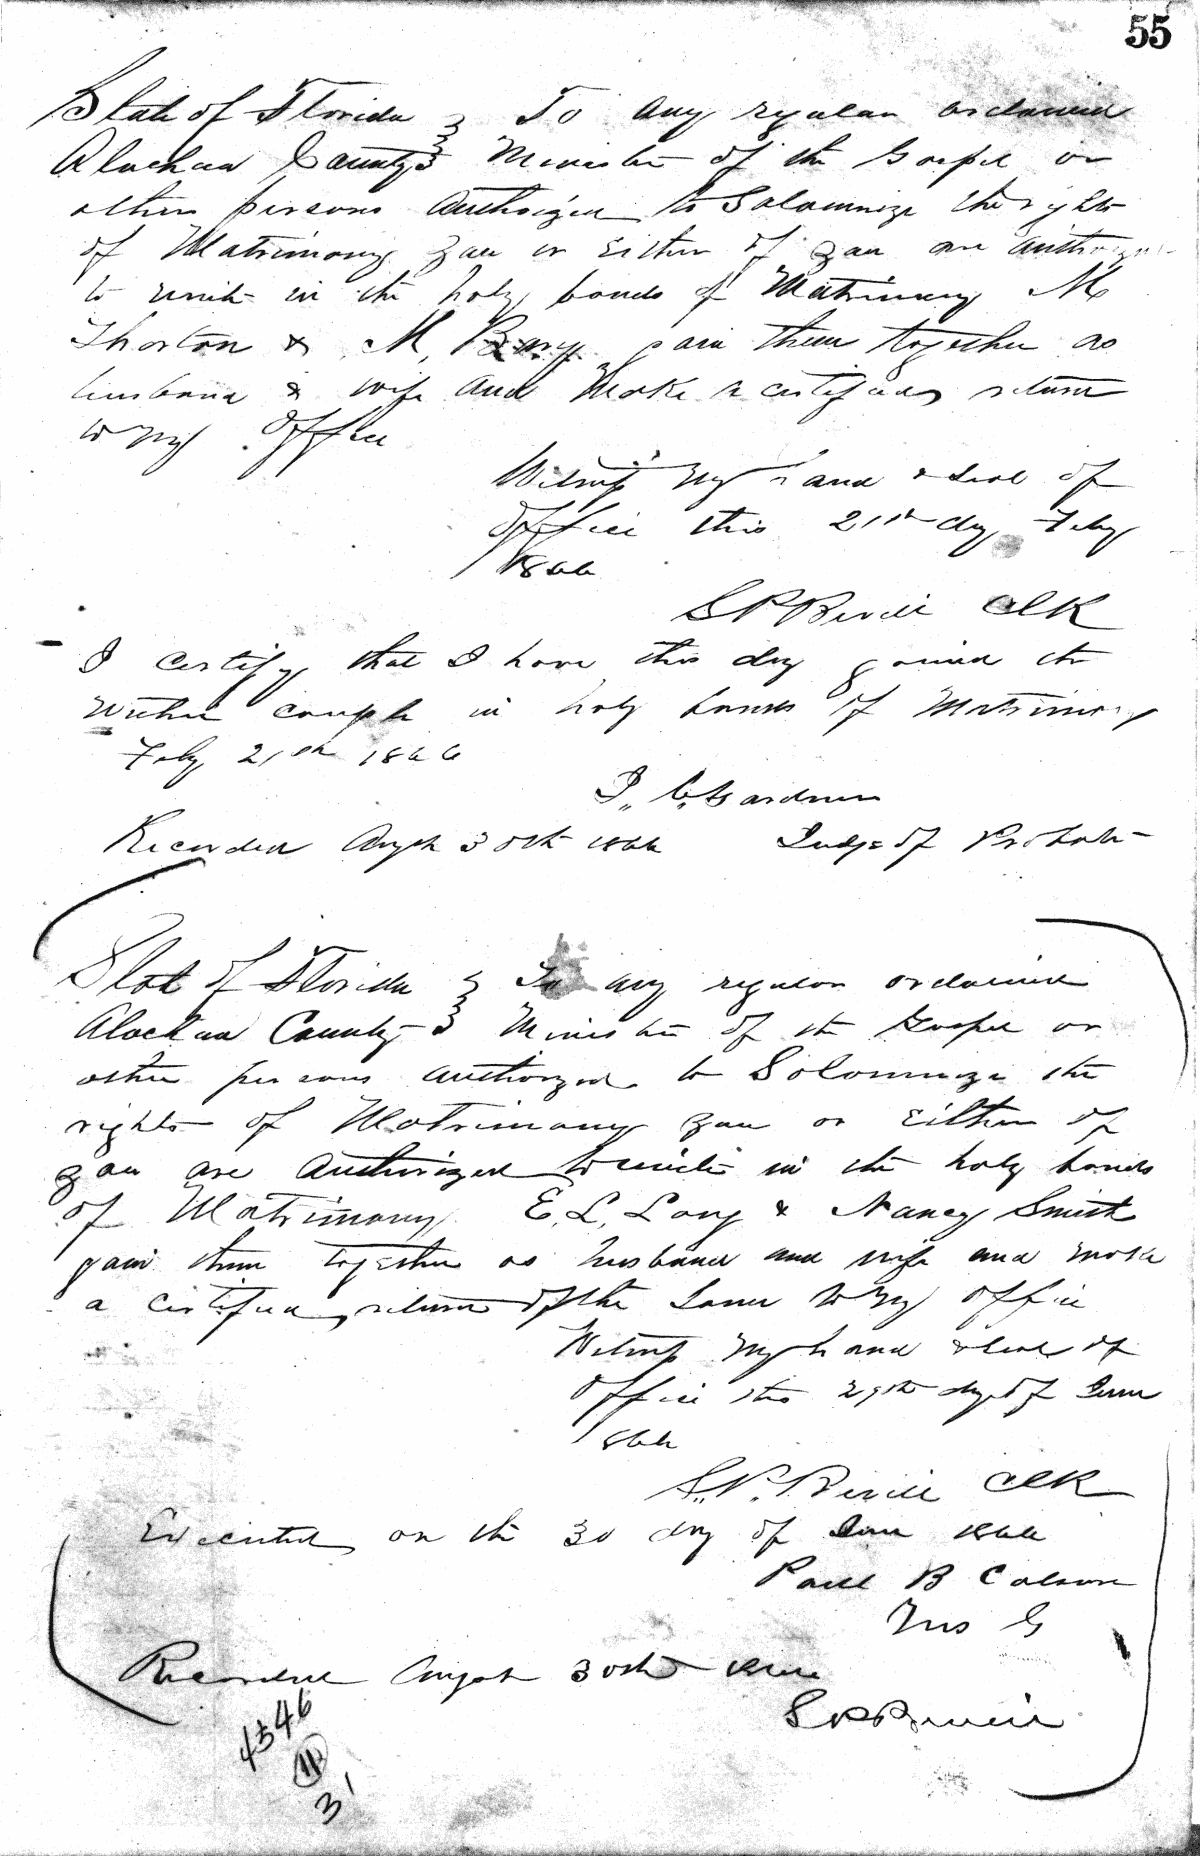 55
State of Florida } To any regular ordained
Alachua County } Minister of the Gospel or
other persons Authorized to Solomnize the rights
of Matrimony you or Either of you are authorized
to unite in the holy bonds of Matrimony M
Thorton & M, Bary join them together as
husband & wife and Make a certified return
to my Office
Witness my hand & Seal of
office this 21st day Feby
1866
S P Bevill ClK
I certify that I have this day joined the
Within couple in holy bonds of Matrimony
Feby 21st 1866
J, C, Gardner
Recorded Augst 30th 1866 Judge of Probate
State of Florida } To any regular ordained
Alachua County } Minister of the Gospel or
other persons authorized to Solomnize the
rights of Matrimony you or Either of
you are Authorized to unite in the holy bonds
of Matrimony E, L, Long & Nancy Smith
join them together as husband and wife and make
a certified return of the Same to my office
Witness my hand & Seal of
office this 29th day of June
1866
S, P, Bevill ClK
Executed on the 30 day of June 1866
Paul B Colson
M G
Recorded Augst 30th 1866
S P Bevill
4546
11
31